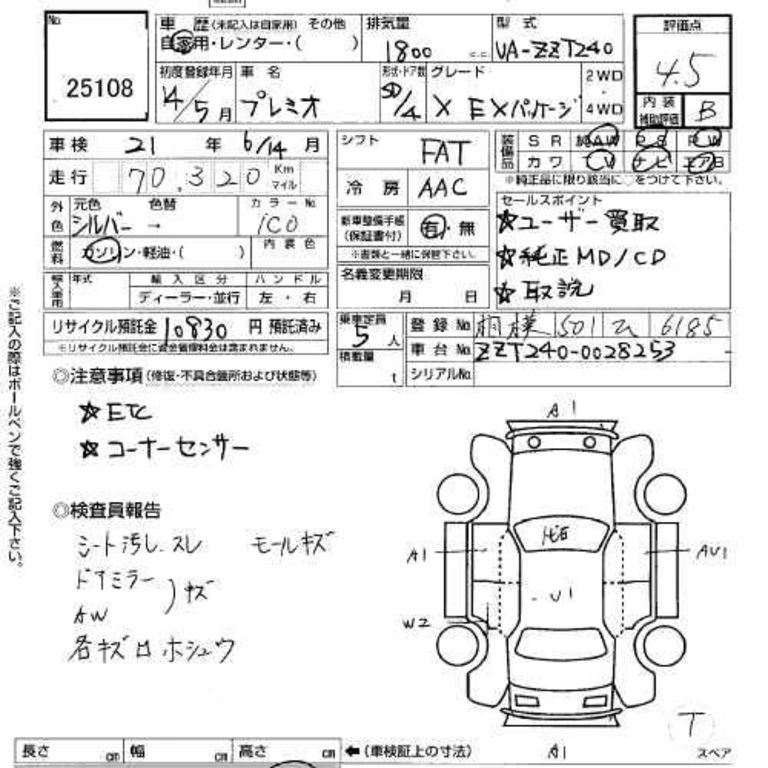 No. 25108
車歴 (未記入は自家用) その他
自家用・レンター・( )
排気量 1800 c.c.
型式 UA-ZZT240
評価点 4.5
内装補助評価 B
初度登録年月 14/5月
車名 プレミオ
形状・ドア数 SD/4
グレード X EXパッケージ
2WD
4WD
車検 21 年 6/14 月
走行 70,320 Km マイル
外色 元色 色替 カラーNo.
シルバー → 1C0
燃料 ガソリン・軽油・( ) 内装色
輸入車用 年式 輸入区分 ハンドル
ディーラー・並行 左・右
リサイクル預託金 10830 円 預託済み
※リサイクル預託金に資金管理料金は含まれません。
シフト FAT
冷房 AAC
新車整備手帳 (保証書付) 有・無
※書類と一緒に保管下さい。
名義変更期限
月 日
乗車定員 5 人
積載量 t
装備品 SR 純AW PS PW
カワ TV ナビ エアB
※純正品に限り該当に○をつけて下さい。
セールスポイント
☆ユーザー買取
☆純正MD/CD
☆取説
登録No. 相模 501 ム 6185
車台No. ZZT240-0028253
シリアルNo.
◎注意事項 (修復・不具合箇所および状態等)
☆ETC
☆コーナーセンサー
◎検査員報告
シート汚し、スレ モールキズ
ドアミラー
AW
)キズ
各キズロホシュウ
A1
A1
AU1
U1
W2
A1
T
スペア
長さ cm 幅 cm 高さ cm ←(車検証上の寸法)
※ご記入の際はボールペンで強くご記入下さい。